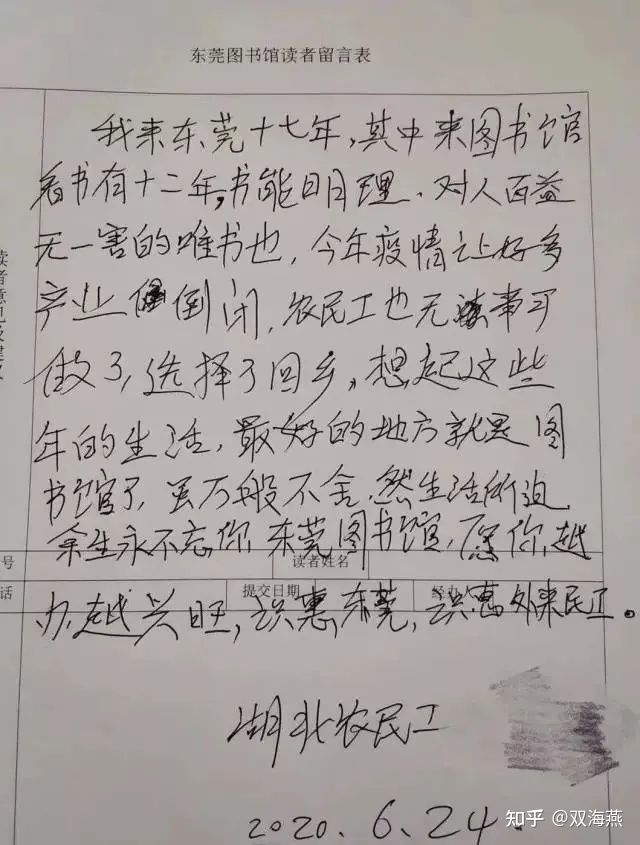 东莞图书馆读者留言表
我来东莞十七年,其中来图书馆
看书有十二年,书能明理、对人百益
无一害的唯书也,今年疫情让好多
产业倒闭,农民工也无事可
做了,选择了回乡,想起这些
年的生活,最好的地方就是图
书馆了,虽万般不舍,然生活所迫,
余生永不忘你,东莞图书馆,愿你越
办越兴旺,识惠东莞,识惠外来民工。
湖北农民工
2020.6.24.
读者意见及建议
号
读者姓名
话
提交日期
经办人
知乎 @双海燕